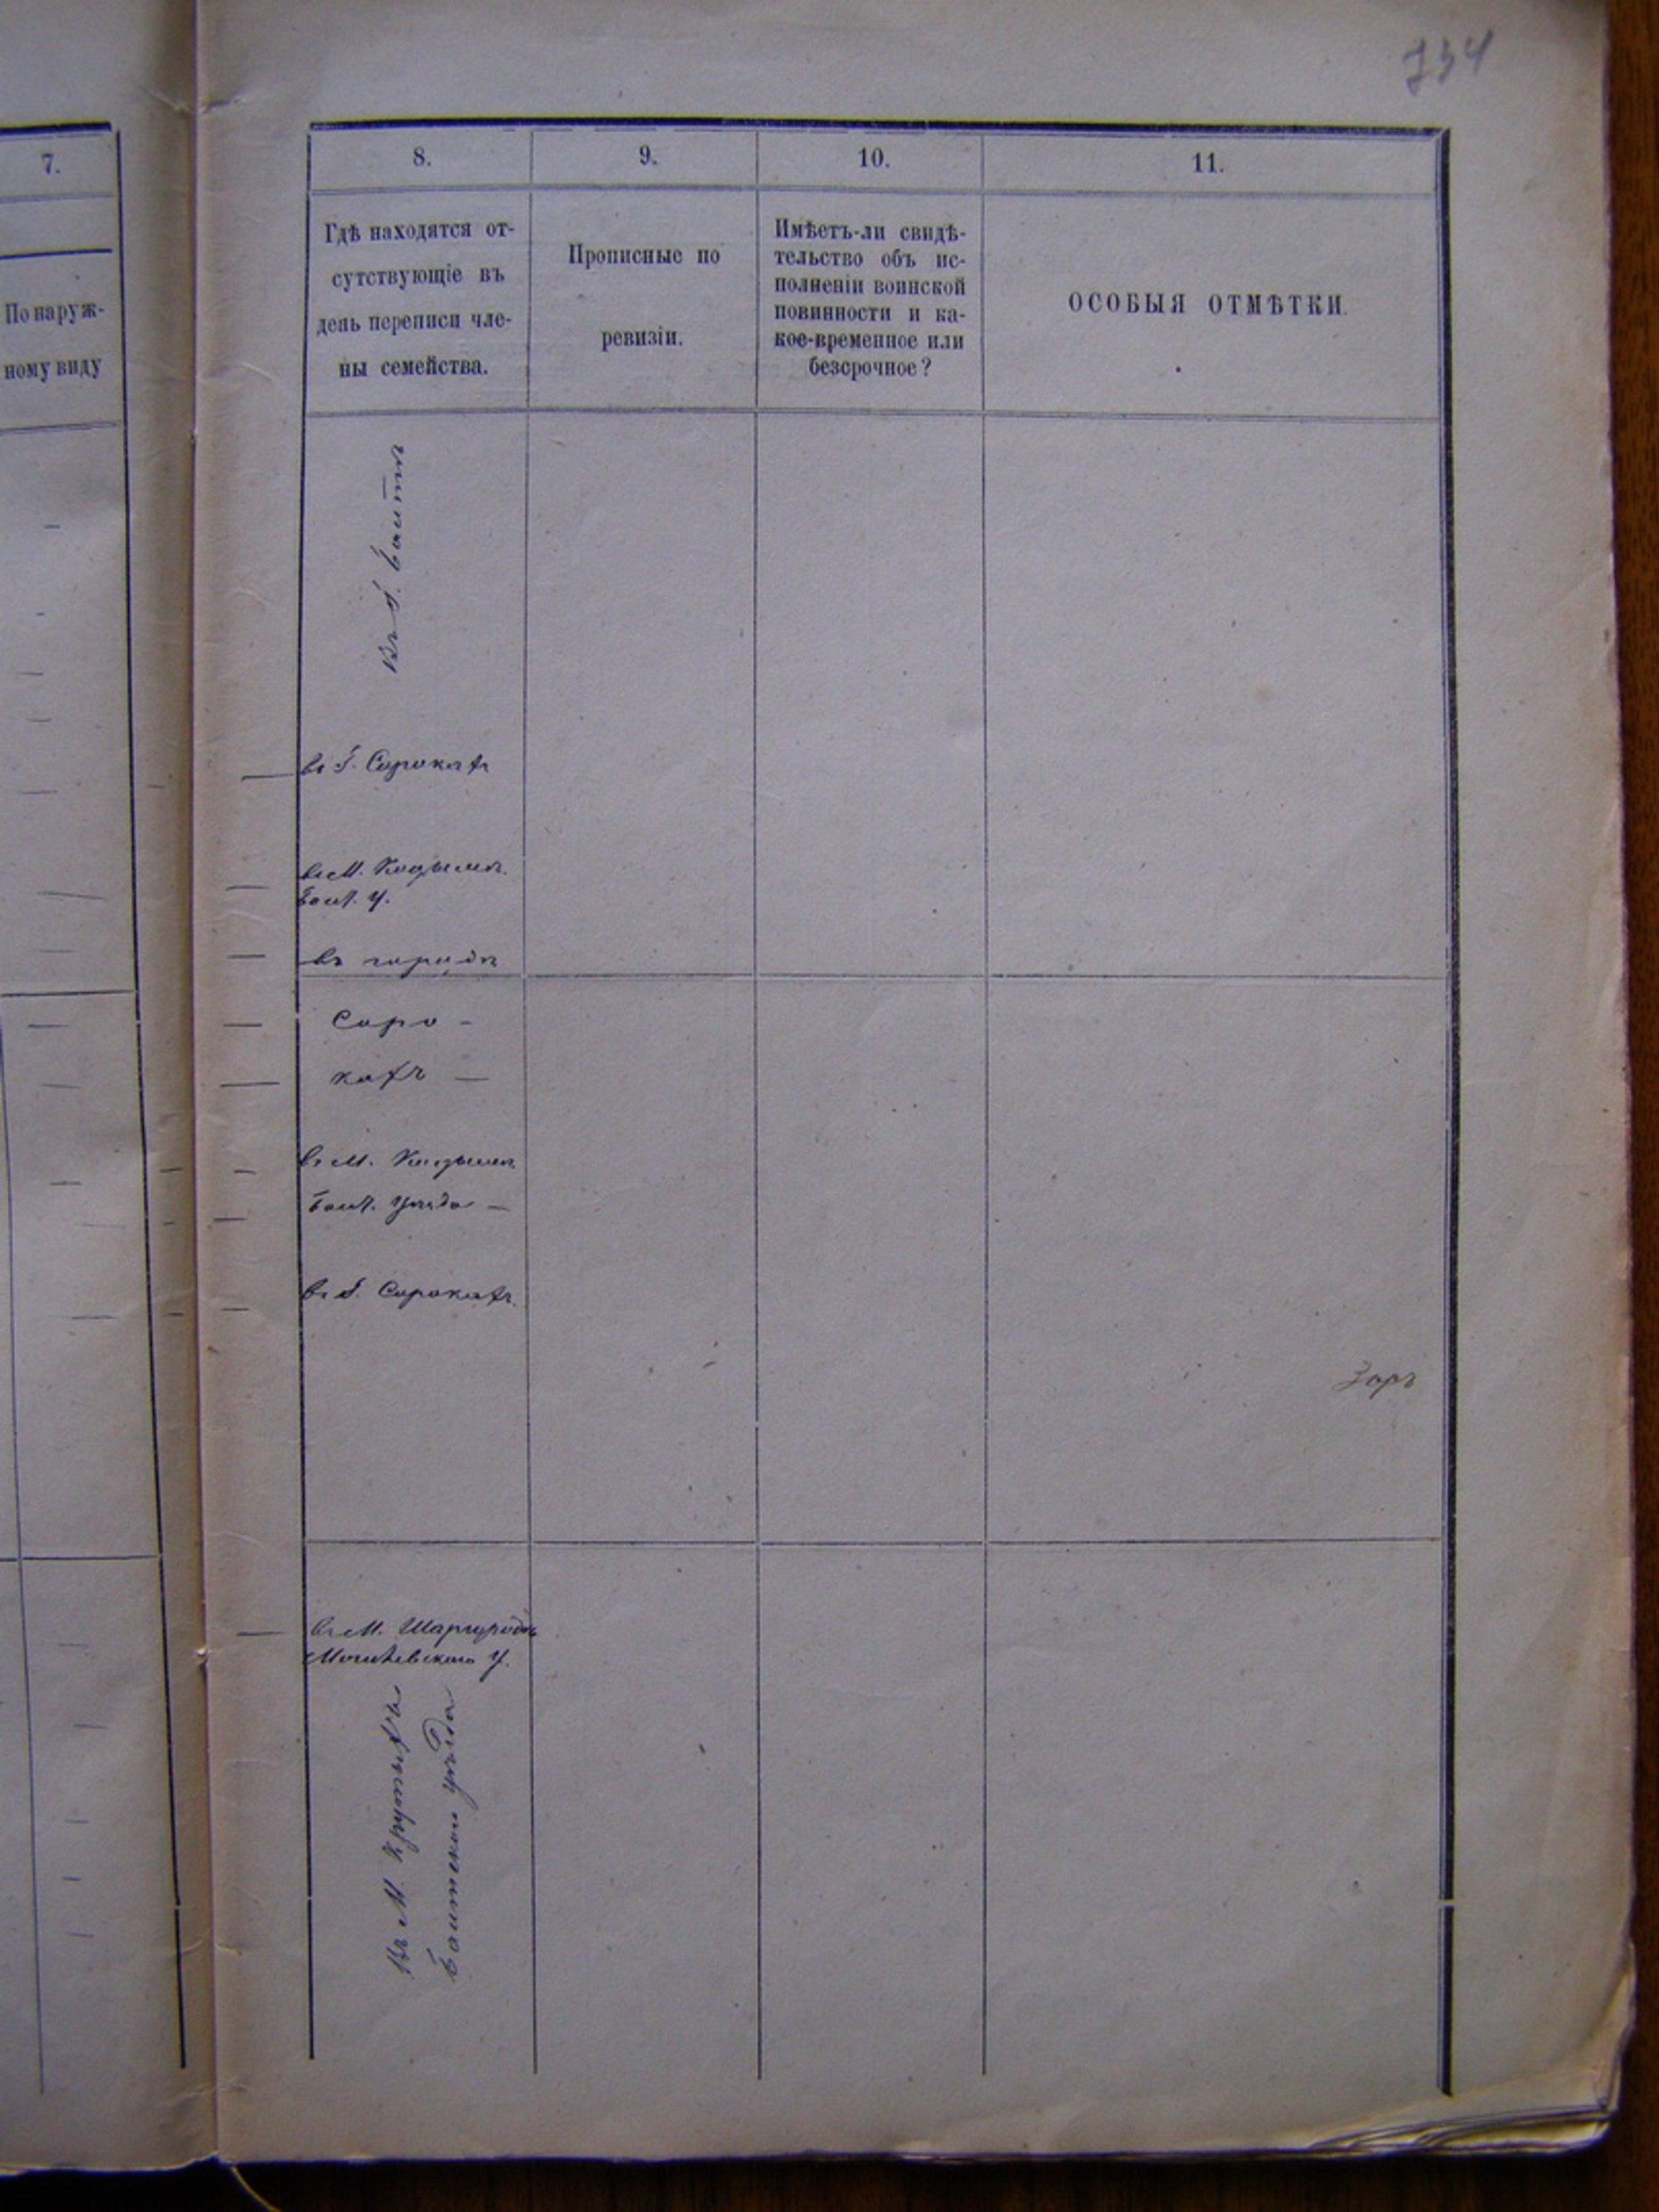 734
7.
По наруж-
ному виду
8.
9.
10.
11.
Гдѣ находятся от-
сутствующіе въ
день переписи чле-
ны семейства.
Прописные по
ревизіи.
Имѣетъ-ли свидѣ-
тельство объ ис-
полненіи воинской
повинности и ка-
кое-временное или
безсрочное?
ОСОБЫЯ ОТМѢТКИ.
Въ г. Балтѣ
въ г. Сорокахъ
въ М. Кодымѣ
Балт. у.
въ городѣ
Соро-
кахъ —
въ М. Кодымѣ
Балт. уѣзда —
въ г. Сорокахъ.
въ М. Шаргородѣ
Могилевскаго у.
Въ М. Крутыхъ
Балтскаго уѣзда